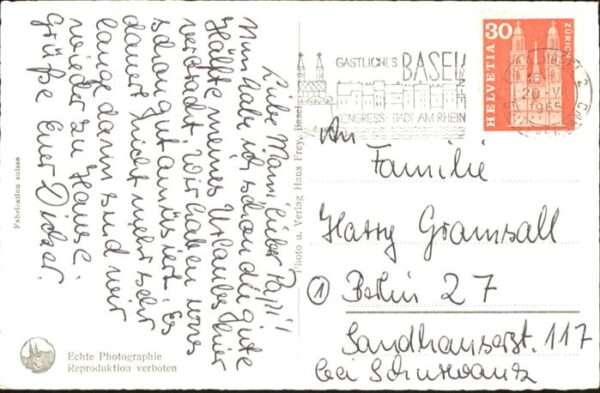 Liebe Mami, lieber Papi!
Nun habe ich schon die gute
Hälfte meines Urlaubes hier
verbracht. Wir haben uns
schon gut amüsiert. Es
dauert nicht mehr sehr
lange dann sind wir
wieder zu Hause.
Grüße Euer
Fabrication suisse
Echte Photographie
Reproduktion verboten
Photo u. Verlag Hans Frey, Basel
GASTLICHES BASEL
KONGRESS-STADT AM RHEIN
30
HELVETIA
ZÜRICH
20.-V.
1965
An
Familie
Harry Gramsall
① Berlin 27
Sandhauserst. 117
bei